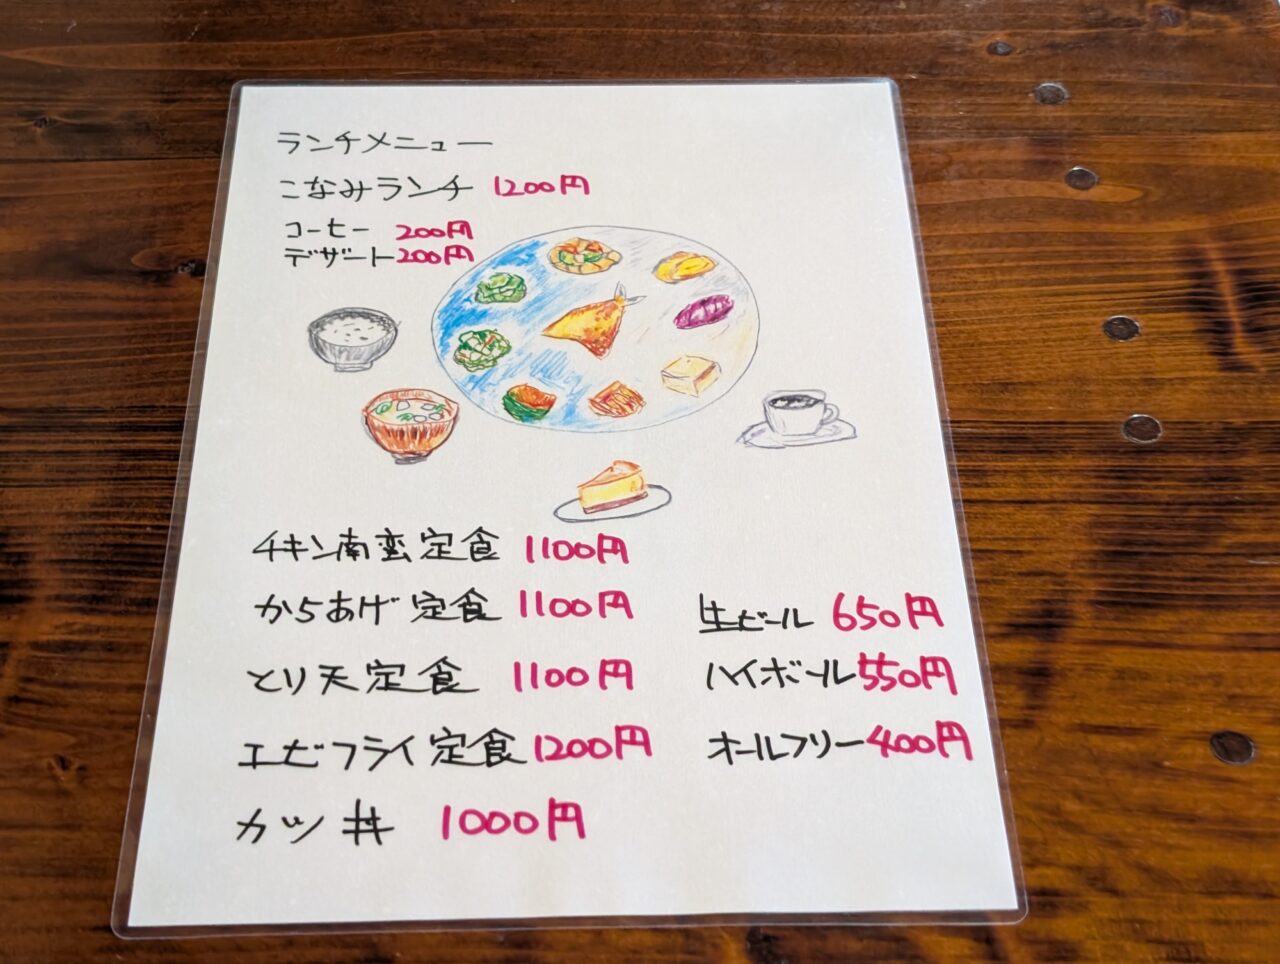 ランチメニュー
こなみランチ 1200円
コーヒー 200円
デザート 200円
チキン南蛮定食 1100円
からあげ定食 1100円
とり天定食 1100円
エビフライ定食 1200円
カツ丼 1000円
生ビール 650円
ハイボール 550円
オールフリー 400円